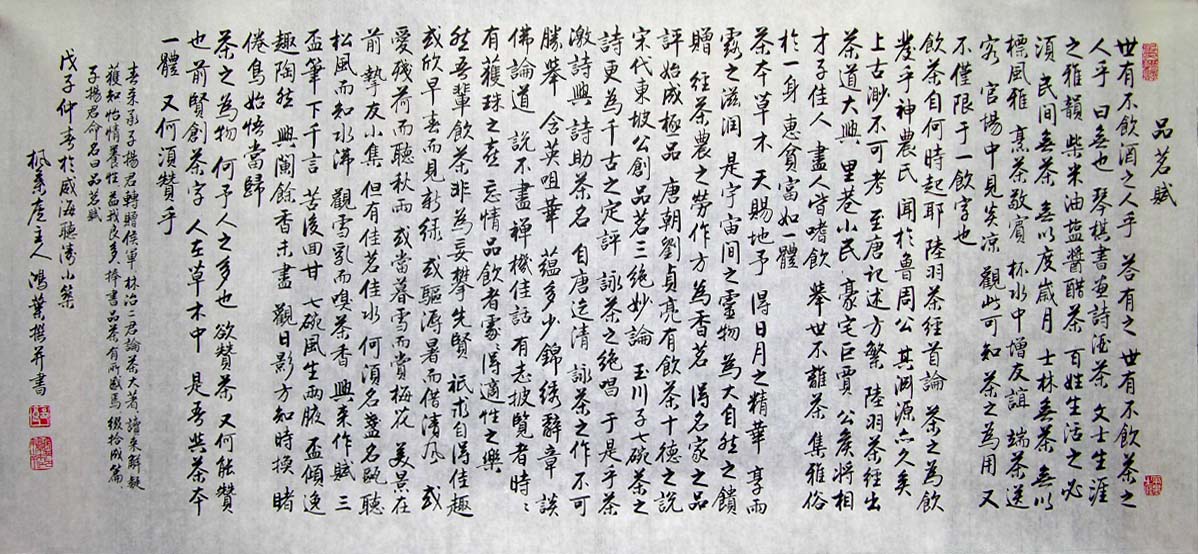 品茗賦
世有不飲酒之人乎 答有之 世有不飲茶之
人乎 曰無也 琴棋書畫詩酒茶 文士生涯
之雅韻 柴米油鹽醬醋茶 百姓生活之必
須 民間無茶 無以度歲月 士林無茶 無以
標風雅 烹茶敬賓 杯水中增友誼 端茶送
客 官場中見炎凉 觀此可知 茶之為用 又
不僅限于一飲字也
飲茶自何時起耶 陸羽茶經首論 茶之為飲
發乎神農氏 聞於魯周公 其淵源亦久矣
上古渺不可考 至唐記述方繁 陸羽茶經出
茶道大興 里巷小民 豪宅巨賈 公矦將相
才子佳人 盡人皆嗜飲 舉世不離茶 集雅俗
於一身 惠貧富如一體
茶本草木 天賜地予 得日月之精華 享雨
露之滋潤 是宇宙間之靈物 為大自然之饋
贈 經茶農之勞作方為香茗 得名家之品
評始成極品 唐朝劉貞亮有飲茶十德之説
宋代東坡公創品茗三絕妙論 玉川子七碗茶之
詩更為千古之定評 詠茶之絕唱 于是乎茶
激詩興 詩助茶名 自唐迄清 詠茶之作不可
勝舉 含英咀華 蘊多少錦綉辭章 談
佛論道 説不盡禅機佳話 有志披覽者時〻
有獲珠之喜 忘情品飲者處〻得適性之樂
然吾輩飲茶非為妄攀先賢 祇求自得佳趣
或欣早春而見新綠 或驅溽暑而借清風 或
愛殘荷而聽秋雨 或當暮雪而賞梅花 美景在
前 摯友小集 但有佳茗佳水 何須名盞名甌 聽
松風而知水沸 觀雪乳而嗅茶香 興來作賦 三
盃筆下千言 苦後回甘 七碗風生兩腋 盃傾逸
趣陶然 興闌餘香未盡 觀日影方知時換 睹
倦鳥始悟當歸
茶之為物 何予人之多也 欲贊茶 又何能贊
也 前賢創茶字 人在草木中 是吾與茶本
一體 又何須贊乎
春來承子揚君轉贈侯軍 林治二君論茶大著 讀來解頤
獲知 怡情養性 益我良多 捧書品茶 有所感焉 綴拾成篇
子揚君命名曰品茗賦
戊子仲春於威海聽濤小築
楓葉廬主人 鴻葉撰并書